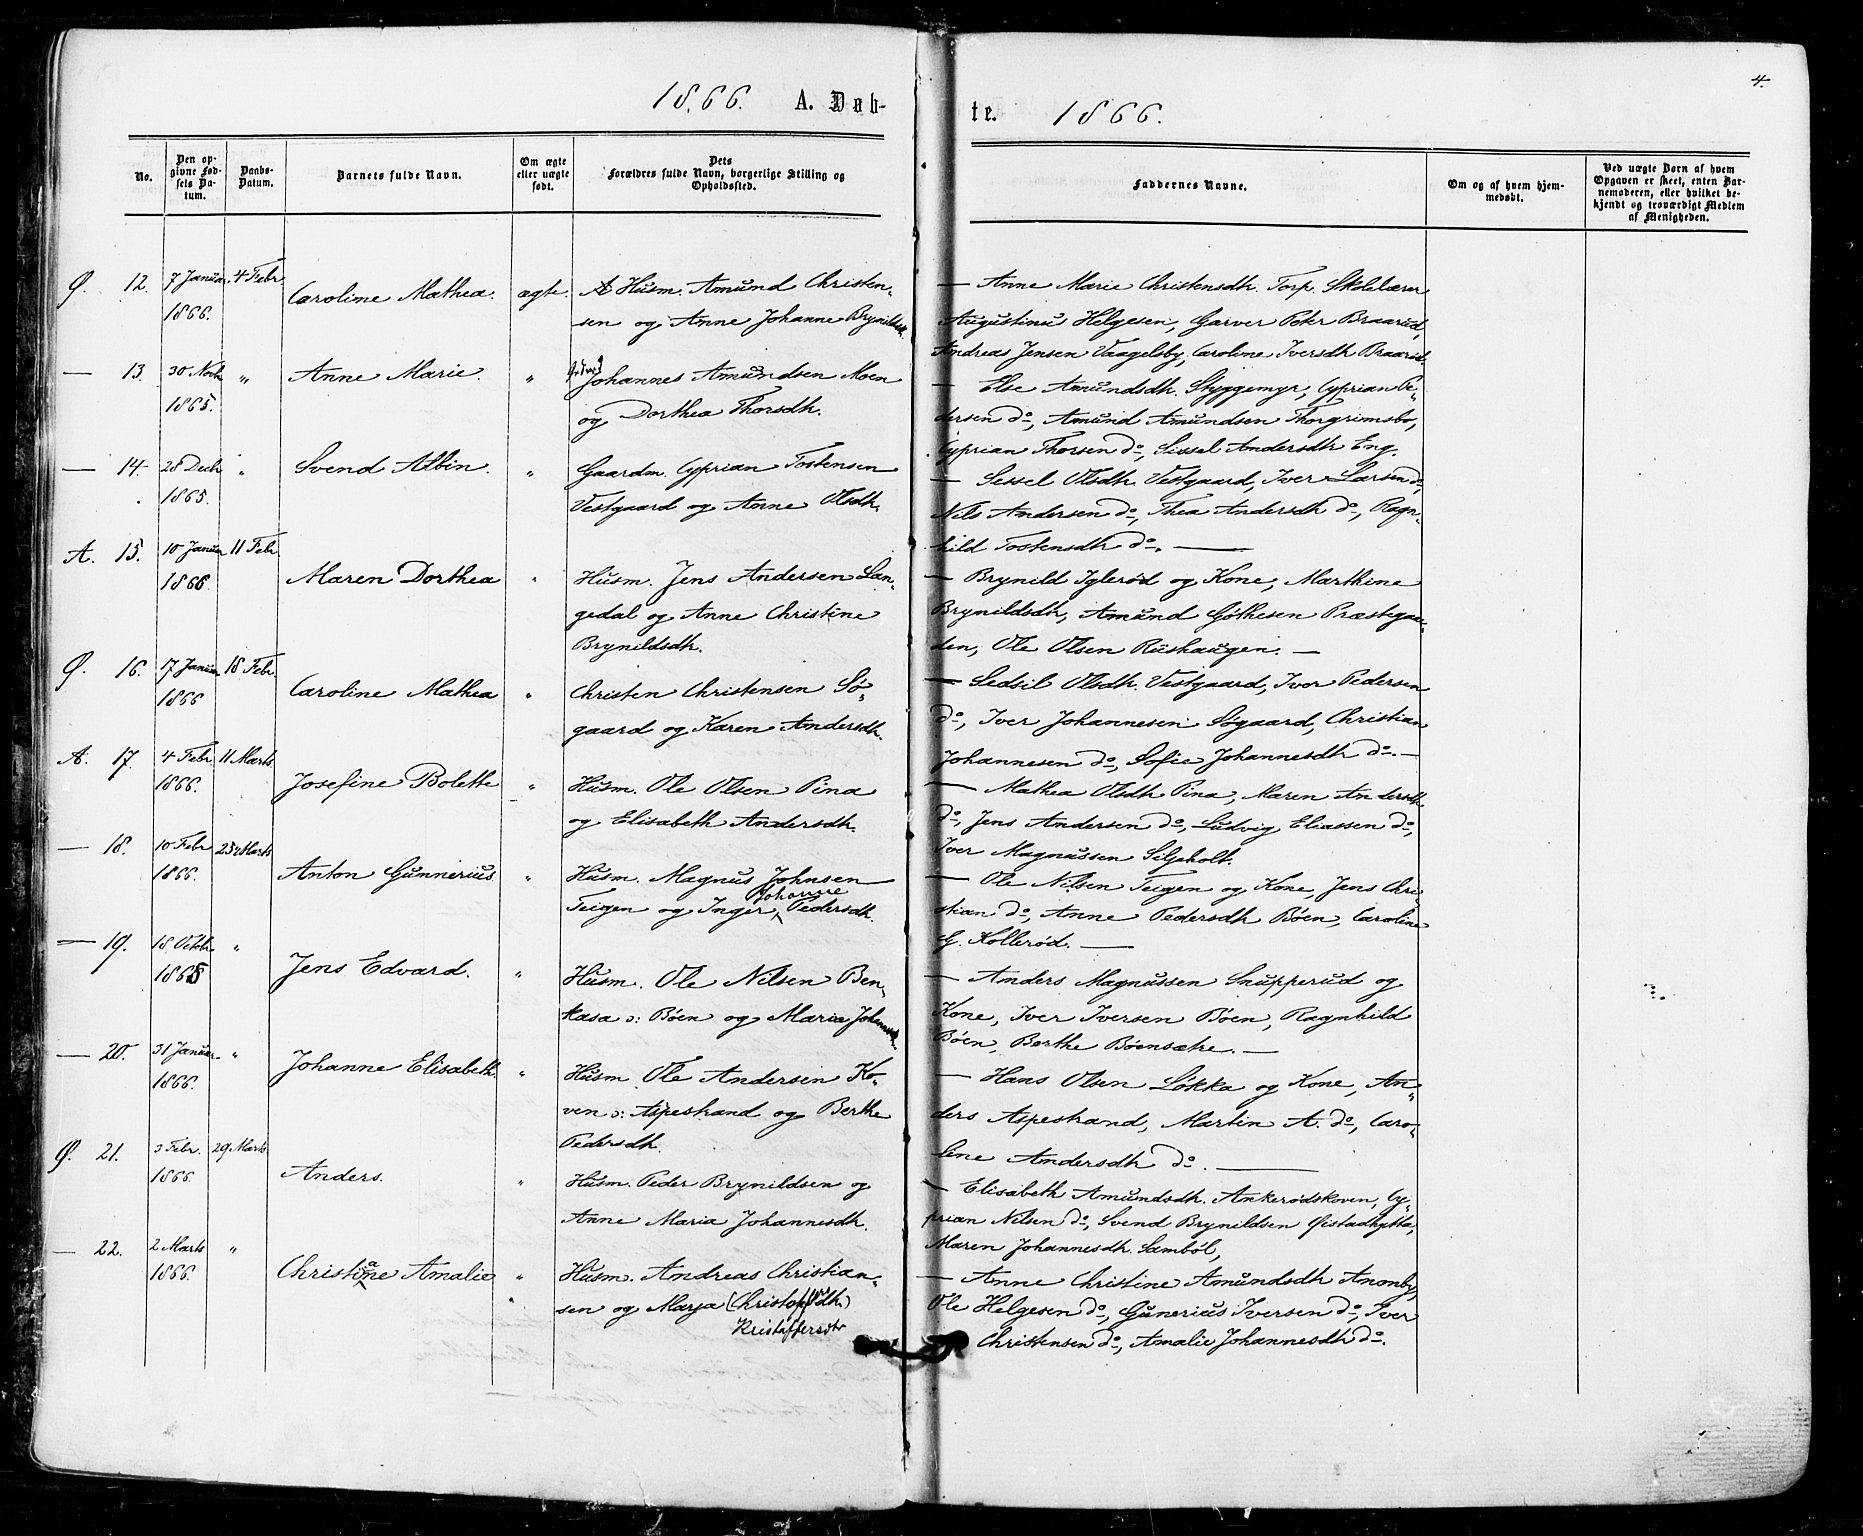 1866. A. Døb-
No.
Den op-
givne Fød-
sels Da-
tum.
Daabs-
Datum.
Barnets fulde Navn.
Om ægte
eller uægte
født.
Dets
Forældres fulde Navn, borgerlige Stilling og
Opholdssted.
Ø. 12. 7 Januar 4 Febr
1866.
Caroline Mathea. ægte. Husm. Amund Christen-
sen og Anne Johanne Brynildsdh.
— 13. 30 Novbr „
1865.
Anne Marie. „ Johannes Amundsen Moen
og Dorthea Thorsdh.
— 14. 28 Decbr „
1865.
Svend Albin. „ Gaardm. Cyprian Tostensen
Vestgaard og Anne Olsdh.
A. 15. 10 Januar 11 Febr.
1866
Maren Dorthea „ Husm. Jens Andersen Lan-
gedal og Anne Christine
Brynildsdh.
Ø. 16. 17 Januar 18 Febr
1866
Caroline Mathea „ Christen Christensen Sø-
gaard og Karen Andersdh.
A. 17. 4 Febr 11 Marts
1866.
Josefine Bolette „ Husm. Ole Olsen Pina
og Elisabeth Andersdh.
— 18. 10 Febr 25 Marts
1866.
Anton Gunnerius „ Husm. Magnus Johnsen
Johanne
Teigen og Inger Pedersdh.
— 19. 18 Octbr „
1865
Jens Edvard. „ Husm. Ole Nilsen Ben-
kasa ɔ: Bøen og Maria Johannesdh.
— 20. 31 Januar „
1866.
Johanne Elisabeth „ Husm Ole Andersen Ko-
ven ɔ: Aspestrand og Berthe
Pedersdh.
Ø. 21. 3 Febr. 29 Marts
1866.
Anders. „ Husm. Peder Brynildsen og
Anne Maria Johannesdh.
— 22. 2 Marts „
1866.
a
Christine Amalie „ Husm. Andreas Christian-
sen og Marja (Christophsdh)
Kristaffersdtr
4.
te. 1866.
Faddernes Navne.
Om og af hvem hjem-
medøbt.
Ved uægte Børn af hvem
Opgaven er skeet, enten Bar-
nemoderen, eller hvilket be-
kjendt og troværdigt Medlem
af Menigheden.
— Anne Marie Christensdh. Torp. Skolelærer
Augustinus Helgesen, Garver Peter Braarud,
Andreas Jensen Vaagelsby, Caroline Iversdh Braarud.
— Else Amundsdh. Styggemyr, Cyprian Pe-
dersen do, Amund Amundsen Thorgrimsbø,
Cyprian Thorsen do, Sissel Andersdh Eng.
— Sessel Olsdh. Vestgaard, Iver Larsen do,
Nils Andersen do, Thea Andersdh do, Ragn-
hild Tostensdh do. —
— Brynild Iglerød og Kone, Marthine
Brynildsdh, Amund Gøthesen Præstegaar-
den, Ole Olsen Rishaugen. —
— Sedsil Olsdh. Vestgaard, Iver Pedersen
do, Iver Johannesen Søgaard, Christian
Johannesen do, Sofie Johannesdh do. —
— Mathea Olsdh Pina, Maren Andersdh
do, Jens Andersen do, Ludvig Eliassen do,
Iver Magnussen Siljeholt.
— Ole Nilsen Teigen og Kone, Jens Chri-
stian do, Anne Pedersdh Bøen, Caroline
G. Kollerød. —
— Anders Magnussen Snupperud og
Kone, Iver Iversen Bøen, Ragnhild
Bøen, Berthe Bøensætre. —
— Hans Olsen Løkka og Kone, An-
ders Aspestrand, Martin A. do, Caro-
line Andersdh do. —
— Elisabeth Amundsdh. Ankerødskoven, Cy-
prian Nilsen do, Svend Brynildsen Øistadhytta,
Maren Johannesdh. Sambøl,
— Anne Christine Amundsdh Anonby,
Ole Helgesen do, Gunerius Iversen do, Iver
Christensen do, Amalie Johannesdh do.